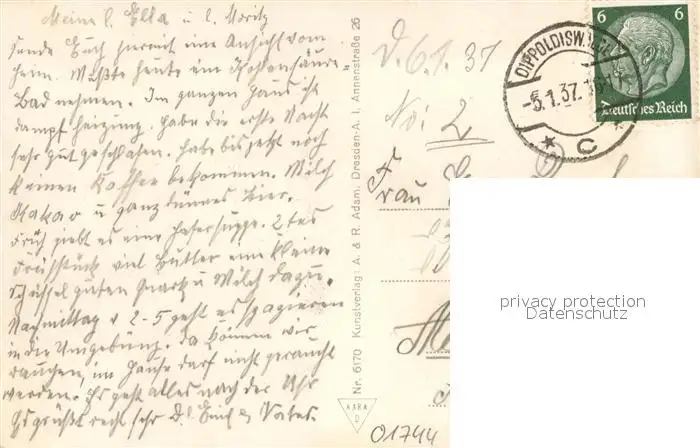 Meine l. Ella u l. Moritz
sende Euch hiermit eine Ansicht vom
Heim. Mußte heute ein Kohlensäure
Bad nehmen. Im ganzen Haus ist
Dampfheizung. habe die erste Nacht
sehr gut geschlafen. habe bis jetzt noch
keinen Kaffee bekommen. Milch
Kakao u ganz dünnes Bier.
Früh giebt es eine Hafersuppe. 2tes
Frühstück viel Butter eine kleine
Schüssel guten Quark u Milch dazu.
Nachmittag v 2-5 geht es spazieren
in die Umgebung. da können wir
rauchen, im Hause darf nicht geraucht
werden. Es geht alles nach der Uhr
Es grüßt recht sehr
Nr. 6170 Kunstverlag: A. & R. Adam, Dresden-A. 1, Annenstraße 26
D. 6.1.37
No: 2
Frau
DIPPOLDISW
-5.1.37.
* C *
6 6
Deutsches Reich
privacy protection
Datenschutz
01744